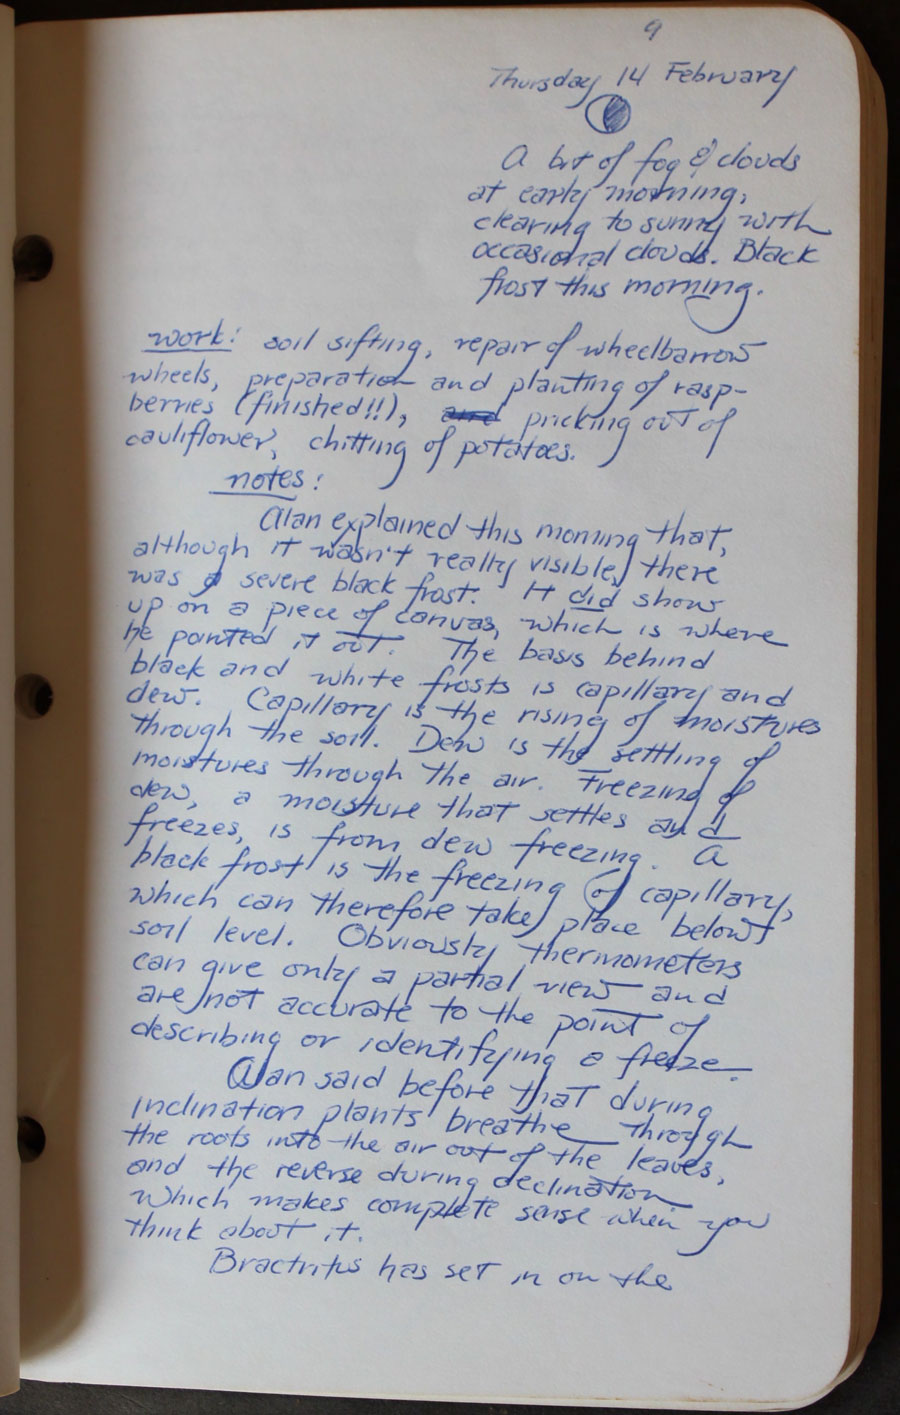 9
Thursday 14 February
A bit of fog & clouds
at early morning,
clearing to sunny with
occasional clouds. Black
frost this morning.
work: soil sifting, repair of wheelbarrow
wheels, preparation and planting of rasp-
berries (finished!!), and pricking out of
cauliflower, chitting of potatoes.
notes:
Alan explained this morning that,
although it wasn't really visible, there
was a severe black frost. It did show
up on a piece of canvas, which is where
he pointed it out. The basis behind
black and white frosts is capillary and
dew. Capillary is the rising of moistures
through the soil. Dew is the settling of
moistures through the air. Freezing of
dew, a moisture that settles and
freezes, is from dew freezing. A
black frost is the freezing of capillary,
which can therefore take place below
soil level. Obviously thermometers
can give only a partial view and
are not accurate to the point of
describing or identifying a freeze.
Alan said before that during
inclination plants breathe through
the roots into the air out of the leaves,
and the reverse during declination
which makes complete sense when you
think about it.
has set in on the